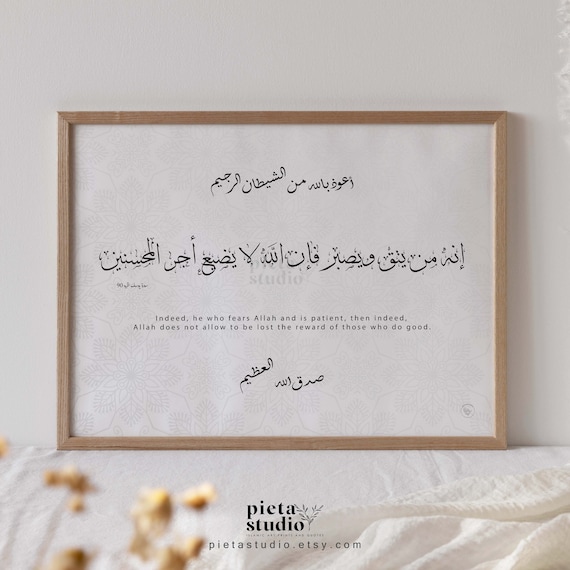 أعوذ بالله من الشيطان الرجيم
إنه من يتق ويصبر فإن الله لا يضيع أجر المحسنين
pieta
studio
Indeed, he who fears Allah and is patient, then indeed,
Allah does not allow to be lost the reward of those who do good.
صدق الله العظيم
pieta
studio
ISLAMIC ART PRINTS AND QUOTES
pietastudio.etsy.com